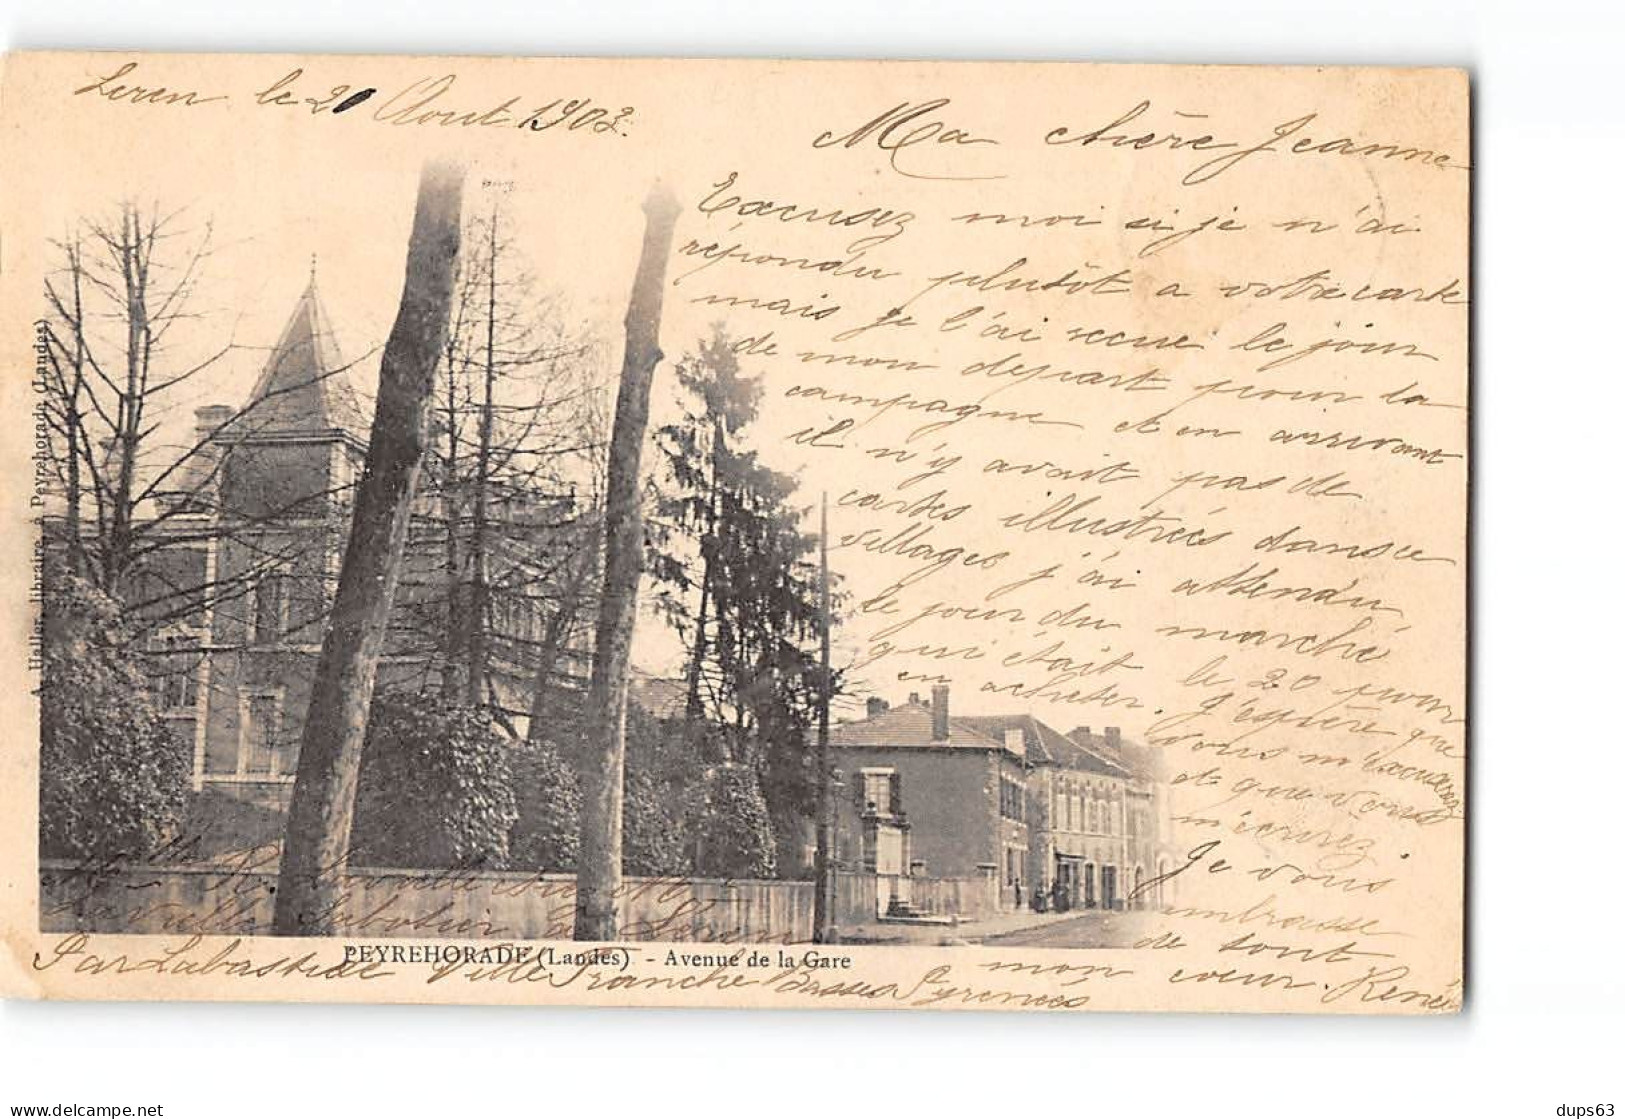 Leren le 21 Aout 1903.
Ma chère Jeanne
Excusez moi si je n'ai
répondu plutôt a votre carte
mais je l'ai recue le jour
de mon depart pour la
campagne et en arrivant
il n'y avait pas de
cartes illustrées dans ce
villages j'ai attendu
le jour du marché
qui était le 20 pour
en acheter. J'espère que
vous m'excuserez
et que vous
m'écrirez.
Je vous
embrasse
de tout
mon coeur. Renée
A. Haller, libraire à Peyrehorade (Landes)
Melle R. Laville chez Mr
Laville Sabotier à Leren
PEYREHORADE (Landes) - Avenue de la Gare
Par Labastide Ville Franche Basses Pyrenées
delcampe.net
dups63